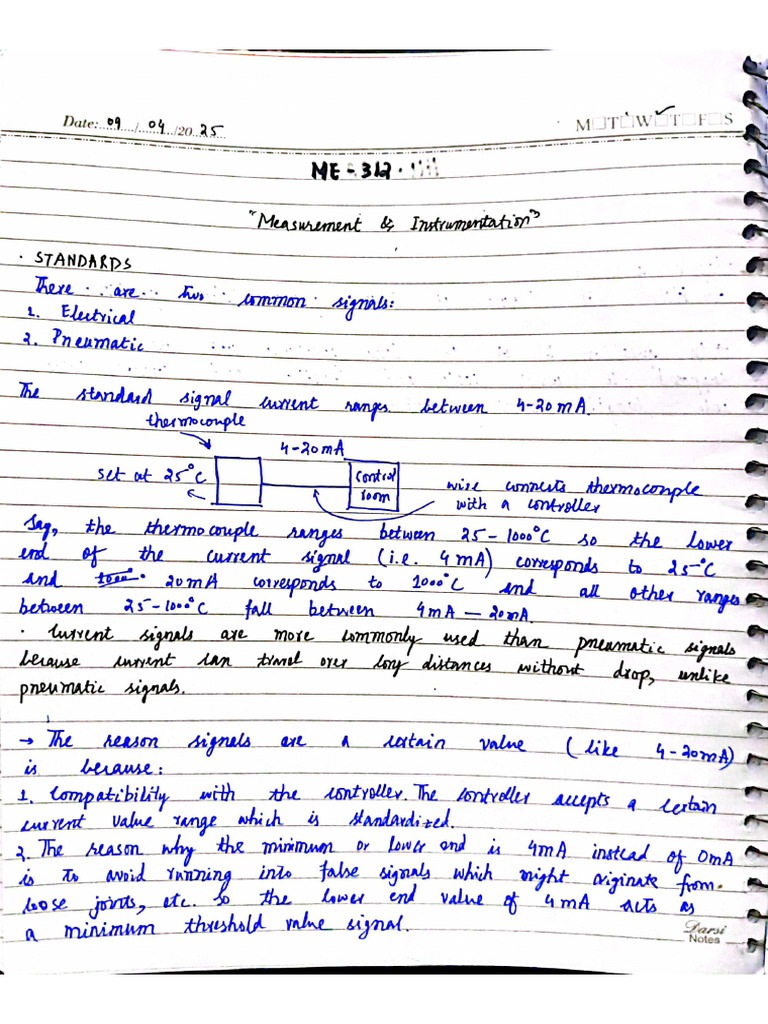 Date: 09/04/2025
M T W T F S
ME - 312.
"Measurement & Instrumentation"
· STANDARDS
There are two common signals:
1. Electrical
2. Pneumatic
The standard signal current ranges between 4-20mA.
thermocouple
4-20mA
set at 25°C
control
room
wire connects thermocouple
with a controller
Say, the thermocouple ranges between 25-1000°C so the lower
end of the current signal (i.e. 4mA) corresponds to 25°C
and 20mA corresponds to 1000°C and all other ranges
between 25-1000°C fall between 4mA — 20mA.
· Current signals are more commonly used than pneumatic signals
because current can travel over long distances without drop, unlike
pneumatic signals.
→ The reason signals are a certain value (like 4-20mA)
is because:
1. Compatibility with the controller. The controller accepts a certain
current value range which is standardized.
2. The reason why the minimum or lower end is 4mA instead of 0mA
is to avoid running into false signals which might originate from
loose joints, etc. So the lower end value of 4mA acts as
a minimum threshold value signal.
Darsi
Notes